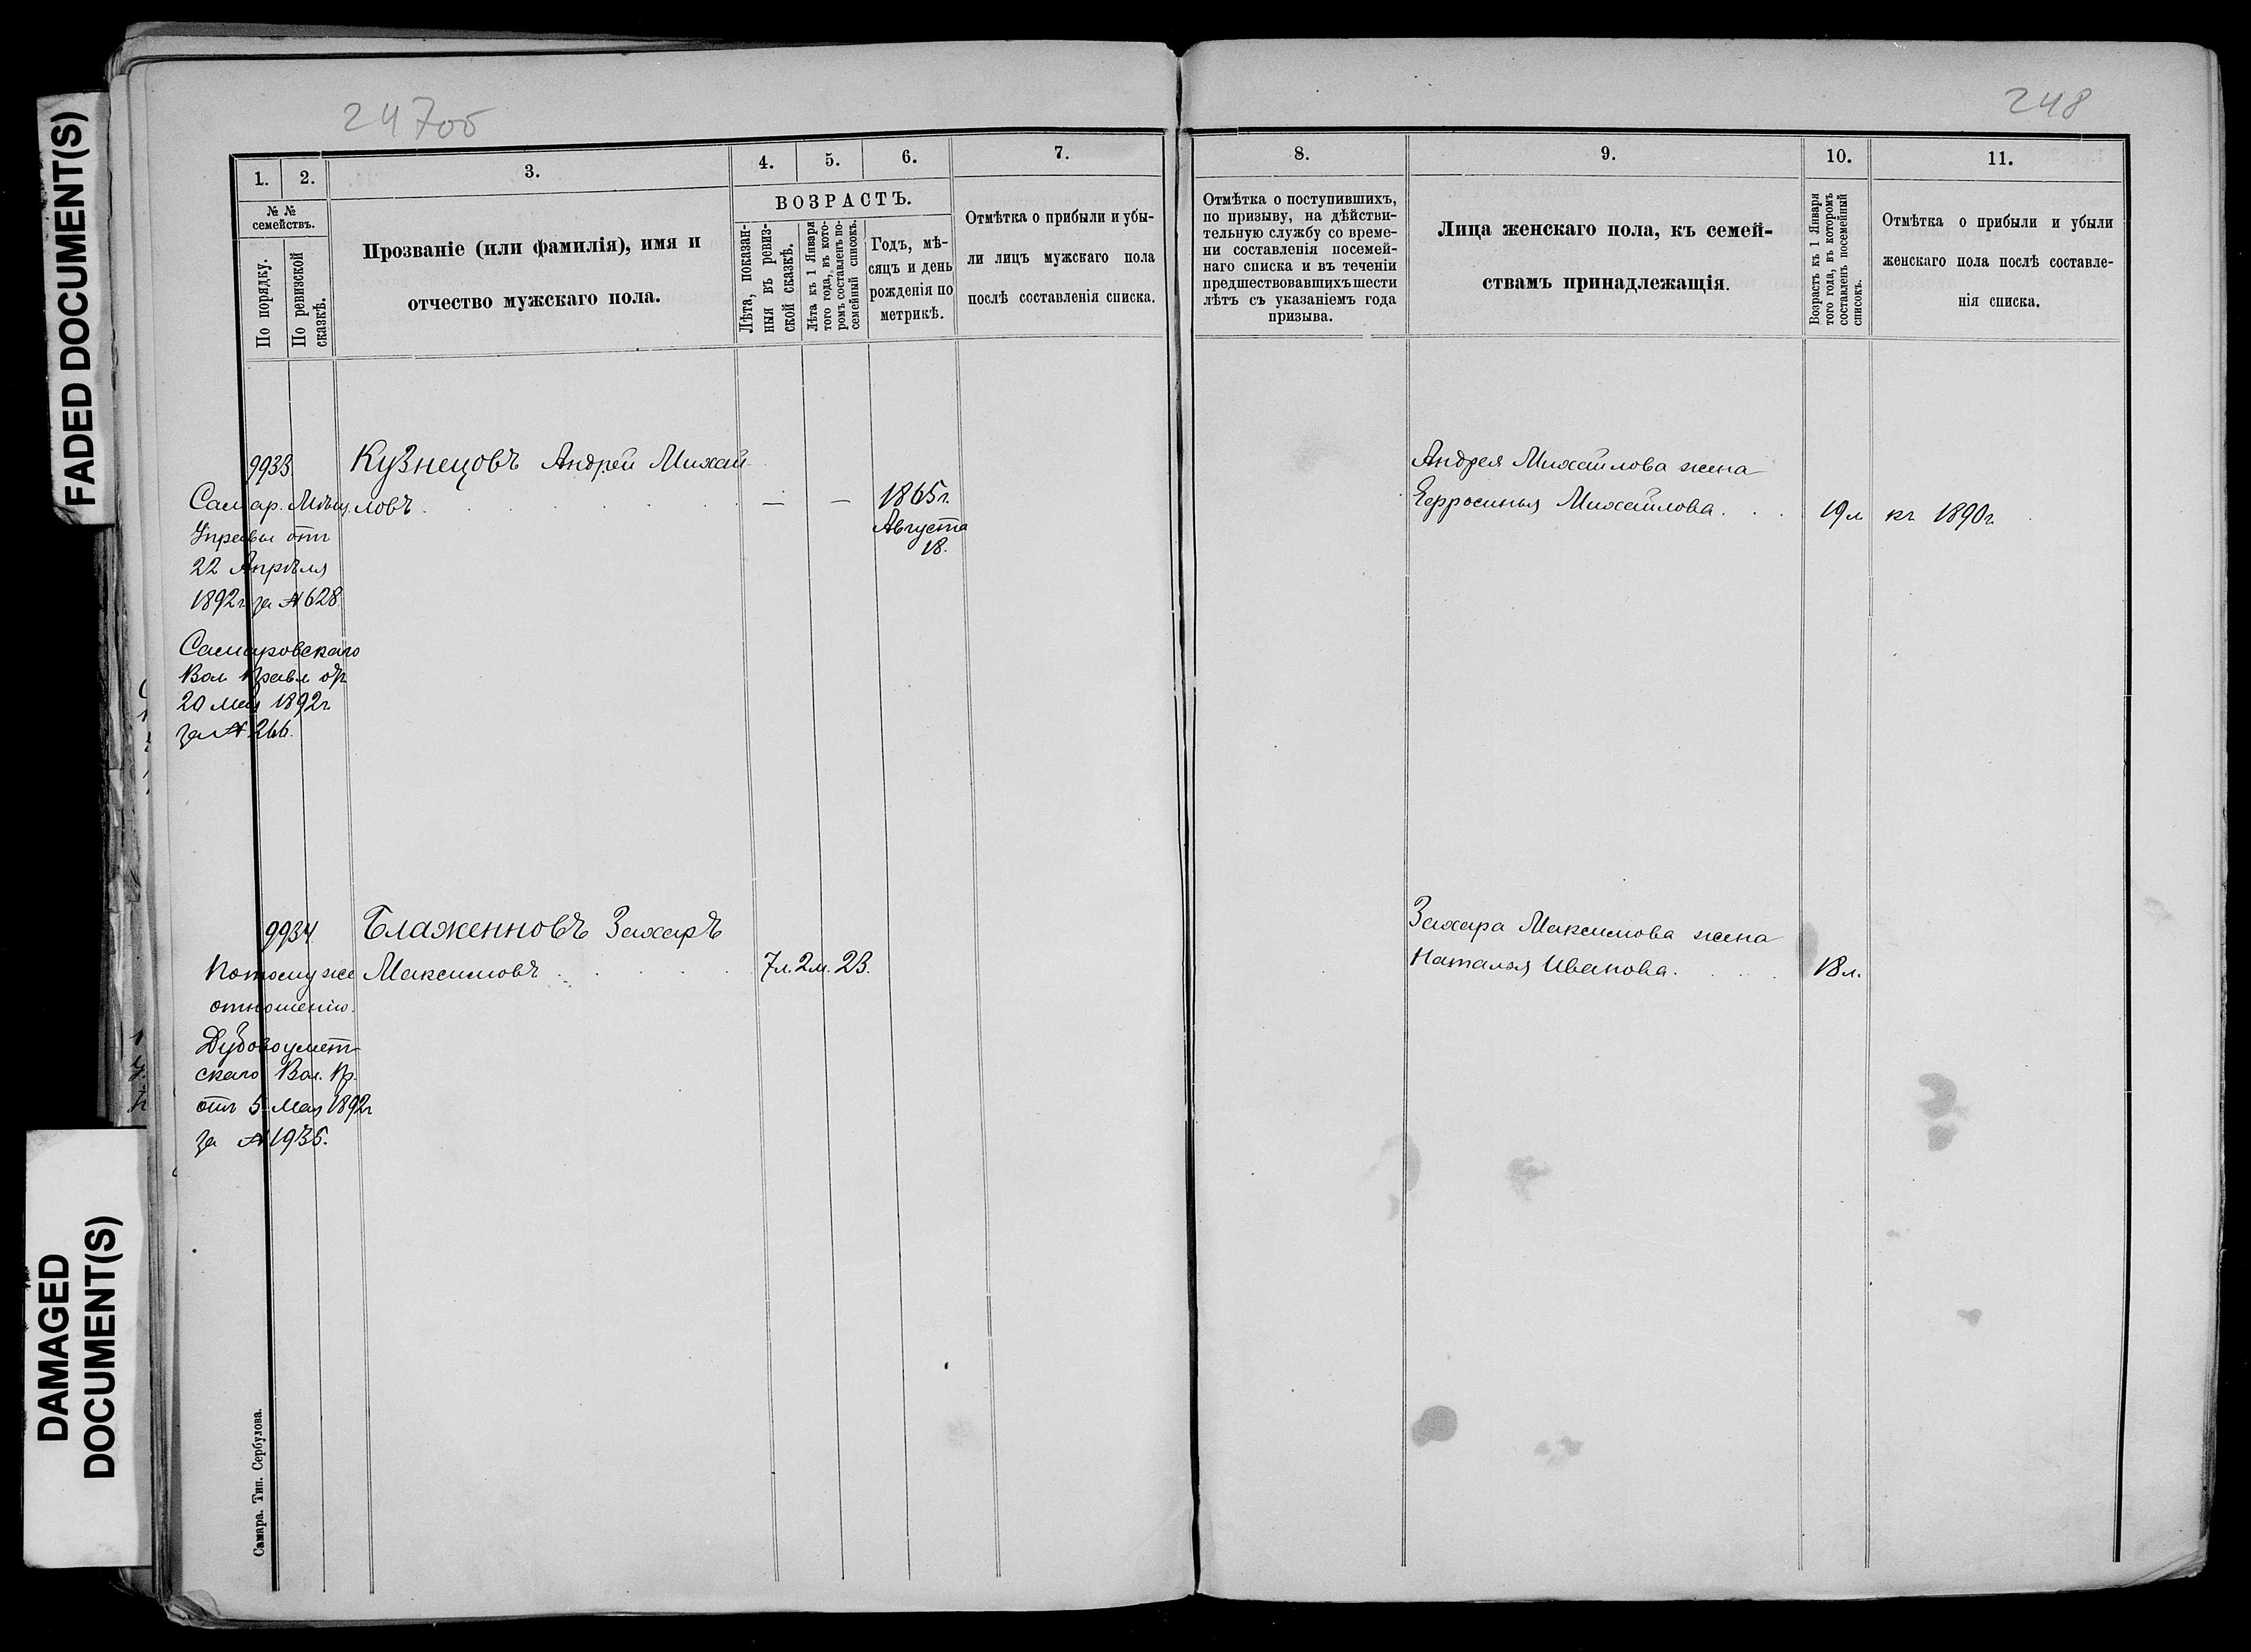 FADED DOCUMENT(S)
DAMAGED
DOCUMENT(S)
247об
1. 2. 3. 4. 5. 6. 7.
№ №
семействъ.
По порядку.
По ревизской
сказкѣ.
Прозваніе (или фамилія), имя и
отчество мужскаго пола.
ВОЗРАСТЪ.
Лѣта, показан-
ныя въ ревиз-
ской сказкѣ.
Лѣта къ 1 Января
того года, въ кото-
ромъ составленъ по-
семейный списокъ.
Годъ, мѣ-
сяцъ и день
рожденія по
метрикѣ.
Отмѣтка о прибыли и убы-
ли лицъ мужскаго пола
послѣ составленія списка.
9933 Кузнецовъ Андрей Михай-
ловъ . . . . . . — — 1865 г.
Августа
18.
Самар. Мѣщ.
Управы отъ
22 Апрѣля
1892 г. за № 628
Самаровскаго
Вол Правл от
20 мая 1892 г.
за № 266.
9934 Блаженновъ Захаръ
Максимовъ . . . . 7 л. 2 м. 23.
По тому же
отношенію.
Дубовоумет-
скаго Вол. Пр.
отъ 5 Мая 1892 г
за № 1935.
Самара. Тип. Сербулова.
248
8. 9. 10. 11.
Отмѣтка о поступившихъ,
по призыву, на дѣйстви-
тельную службу со време-
ни составленія посемей-
наго списка и въ теченіи
предшествовавшихъ шести
лѣтъ съ указаніемъ года
призыва.
Лица женскаго пола, къ семей-
ствамъ принадлежащія.
Возрастъ къ 1 Января
того года, въ которомъ
составленъ посемейный
списокъ.
Отмѣтка о прибыли и убыли
женскаго пола послѣ составле-
нія списка.
Андрея Михайлова жена
Ефросинья Михайлова. . . 19 л къ 1890 г.
Захара Максимова жена
Наталья Иванова. . . . 18 л.